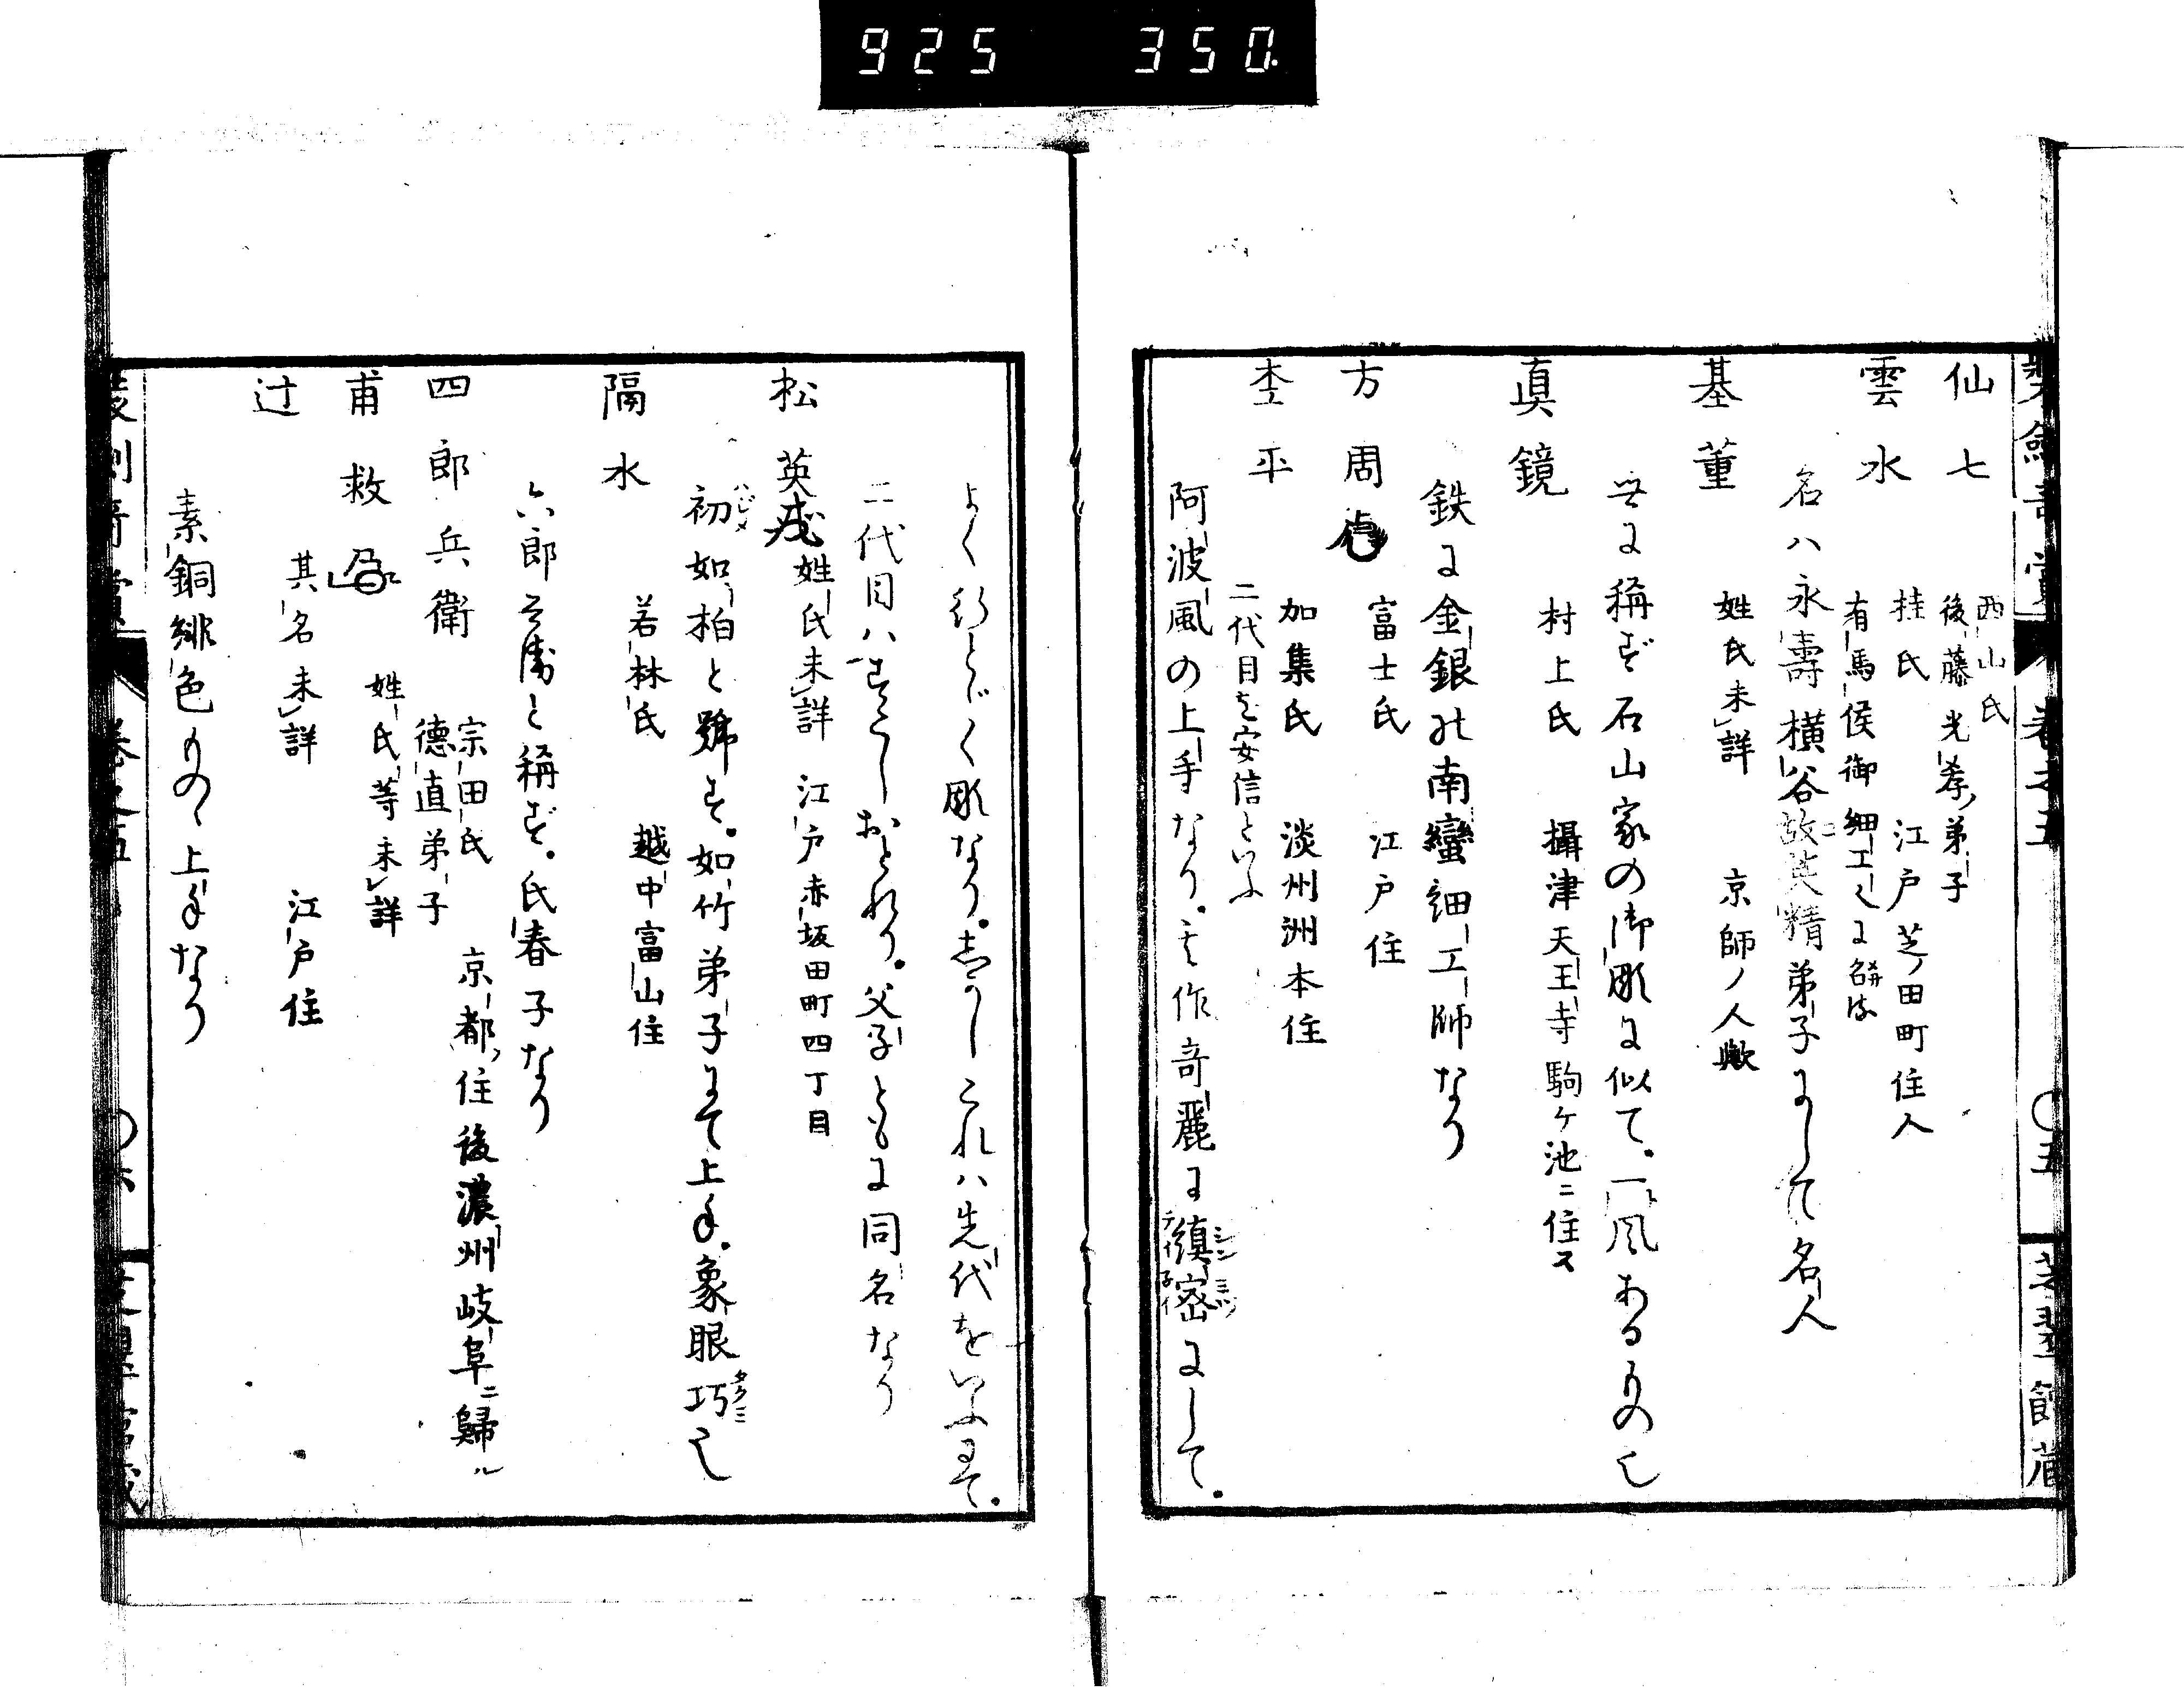 925 350.
仙七 西山氏
後藤光孝ノ弟子
雲水 桂氏 江戸芝ノ田町住人
有馬侯御細工人に召替る
名ハ永壽横谷英精弟子にして名人
基董 姓氏未詳 京師ノ人歟
世に稱ず石山家の御彫に似て。一風あるもの也
眞鏡 村上氏 攝津天王寺駒ケ池ニ住ス
鉄に金銀の南蠻細工師なり
方周 富士氏 江戸住
杢平 加集氏 淡州洲本住
二代目を安信といふ
阿波風の上手なり。其作奇麗に縝密にして。
よく行とゞく彫なり。しかしこれハ先代をいふにて。
二代目ハすこしおとれり。父子ともに同名なり
松英 姓氏未詳 江戸赤坂田町四丁目
初如柏と號す。如竹弟子にて上手。象眼巧也
隔水 若林氏 越中富山住
六郎兵衛と稱ず。氏春子なり
四郎兵衛 宗田氏 京都ノ住後濃州岐阜ニ歸ル
德直弟子
甫救 姓氏等未詳
辻 其名未詳 江戸住
素銅緋色もの上手なり